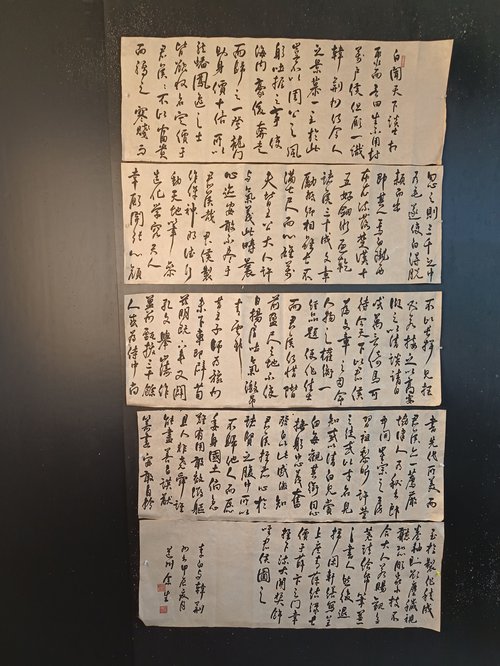 白闻天下谈士相
聚而言曰生不用封
万户侯但愿一识
韩荆州何令人
之景慕一至于此
岂不以周公之风
躬吐握之事使
海内豪俊奔走
而归之一登龙门
则身价十倍所以
龙蟠凤逸之士
皆欲收名定价于
君侯君侯不以富贵
而骄之寒贱而
忽之则三千之中
有毛遂使白得脱
颖而出
即其人焉白陇西
布衣流落楚汉十
五好剑术遍干
诸侯三十成文章
历抵卿相虽长不
满七尺而心雄万
夫皆王公大人许
与气义此畴曩
心迹安敢不尽于
君侯哉君侯制
作侔神明德行
动天地笔参
造化学究天人
幸愿开张心颜
不以长揖见拒
必若接之以高宴
纵之以清谈请日
试万言倚马可
待今天下以君侯
为文章之司命
人物之权衡一
经品题便作佳士
而君侯何惜阶
前盈尺之地不使
白扬眉吐气激昂
青云耶
昔王子师为豫州
未下车即辟荀
慈明既下车又辟
孔文举山涛作
冀州甄拔三十余
人或为侍中尚
书先代所美而
君侯亦一荐严
协律入为秘书郎
中间崔宗之房
习祖黎昕许莹
之徒或以才名见
知或以清白见赏
白每观其衔恩
抚躬忠义奋
发白以此感激知
君侯推赤心于
诸贤之腹中所以
不归他人而愿
委身国士倘急
难有用敢效微躯
且人非尧舜谁
能尽善白谟猷
筹画安敢自矜
至于制作积成
卷轴则欲尘秽视
听恐雕虫小技不
合大人若赐观刍
荛请给纸笔兼
之书人然后退
扫闲轩缮写呈
上庶青萍结绿长
价于薛卞之门幸
推下流大开奖饰
唯君侯图之
李白与韩荆
州书甲辰夏月